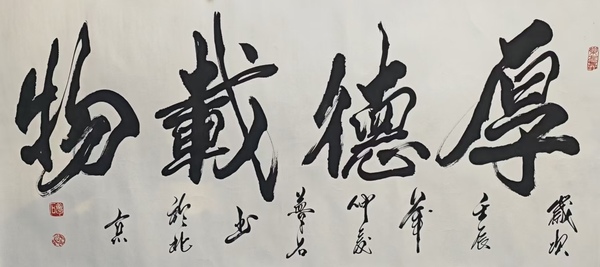 厚德載物
歲次壬辰年仲夏書於北京